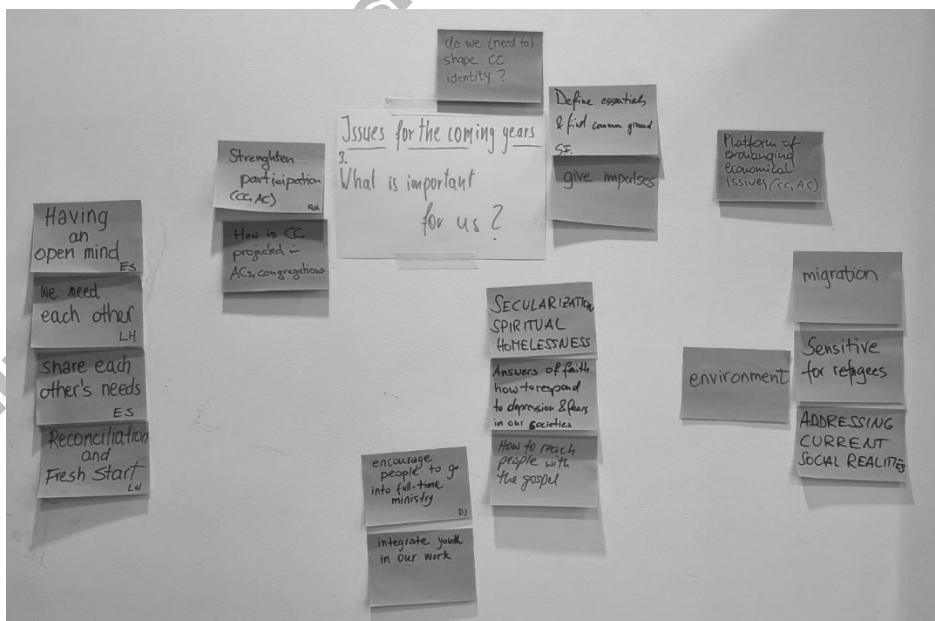 do we (need to)
shape CC
identity ?
Issues for the coming years
3.
What is important
for us ?
Define essentials
& find common ground
SF.
give impulses
Platform of
exchanging
economical
issues (CC, AC)
Strenghten
participation
(CC, AC)
How is CC
projected in
ACs, congregations
Having
an
open mind
ES
We need
each other
LH
share each
other's needs
ES
Reconciliation
and
Fresh Start
LH
SECULARIZATION
SPIRITUAL
HOMELESSNESS
Answers of faith
how to respond
to depression & fears
in our societies
How to reach
people with
the gospel
encourage
people to go
into full-time
ministry
DJ
integrate youth
in our work
environment
migration
Sensitive
for refugees
ADDRESSING
CURRENT
SOCIAL REALITIES